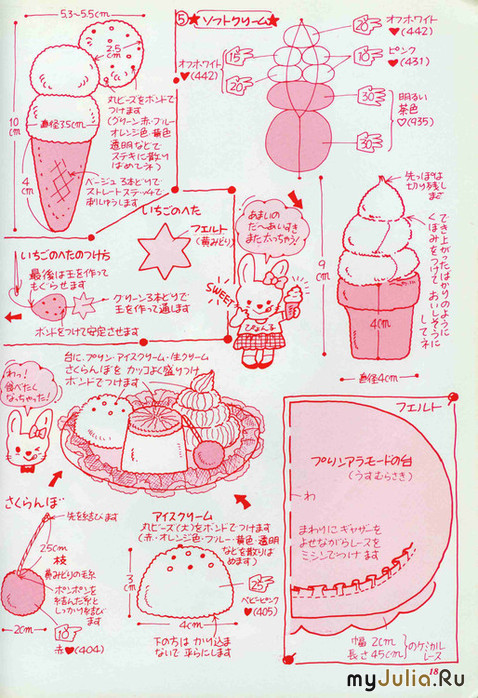 5.3~5.5cm
2.5
cm
10
cm
直径3.5cm
4
cm
丸ビーズをボンドで
つけます
(グリーン・赤・ブルー
オレンジ色・黄色
透明などで
ステキに散り
ばめてネ)
ベージュ3本どりで
ストレートステッチで
さしゅうします
⑤★ソフトクリーム★
オフホワイト
♥(442)
15
20
20
オフホワイト
♥(442)
10
ピンク
♥(431)
30
30
明るい
茶色
♡(935)
いちごのへた
フェルト
(黄みどり)
いちごのへたのつけ方
最後は玉を作って
もぐらせます
グリーン3本どりで
玉を作って通します
ボンドをつけて安定させます
あまいの
だ~あいすき
また太っちゃう!
SWEET
ぴょんこ
9
cm
先っぽは
切り残しま
す
でき上がったばかりのように
くぼみをつけて おいしそうに
してネ
4cm
直径4cm
台に、プリン・アイスクリーム・生クリーム
さくらんぼを カッコよく盛りつけ
ボンドでつけます
わっ!
食べたく
なっちゃった!
さくらんぼ
先を結びます
25cm
枝
黄みどりの毛糸
ポンポンを
結んだ糸と
しっかり結び
ます
2cm
10
赤♥(404)
アイスクリーム
丸ビーズ(大)をボンドでつけます
(赤・オレンジ色・ブルー・黄色・透明
などを散りば
めます)
3
cm
4cm
25
ベビーピンク
♥(405)
下の方は かり込ま
ないで平らにします
フェルト
プリンアラモードの台
(うすむらさき)
わ
まわりにギャザーを
よせながらレースを
ミシンでつけます
幅 2cm
長さ45cm
のケミカル
レース
18
myJulia.Ru